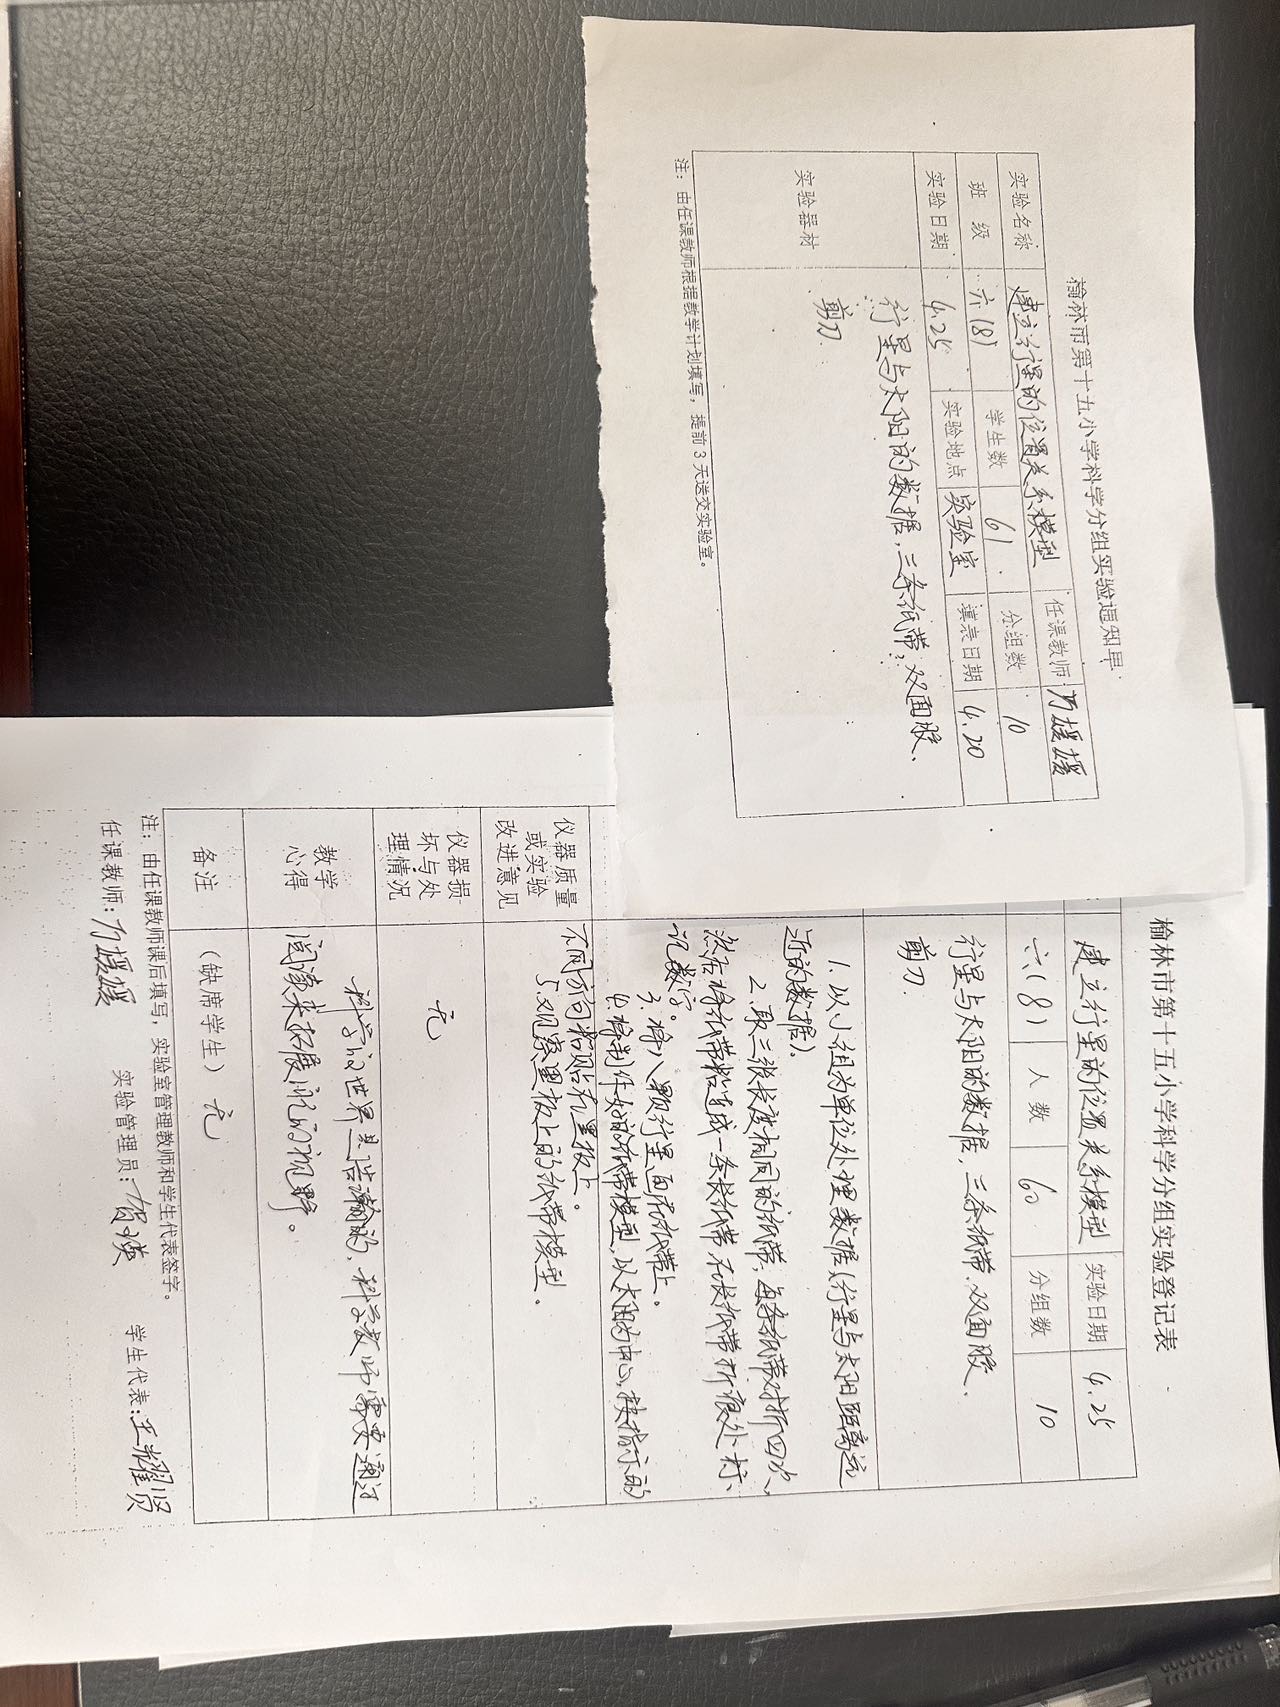 榆林市第十五小学科学分组实验通知单
实验名称 建立行星的位置关系模型 任课教师 万媛媛
班级 六(8) 学生数 61 分组数 10
实验日期 4.25 实验地点 实验室 填表日期 4.20
实验器材
行星与太阳的数据,三条纸带,双面胶、
剪刀.
注:由任课教师根据教学计划填写,提前3天送交实验室。
榆林市第十五小学科学分组实验登记表
建立行星的位置关系模型 实验日期 4.25
六(8) 人数 60 分组数 10
行星与太阳的数据,三条纸带、双面胶、
剪刀.
1.以小组为单位处理数据(行星与太阳距离远
近的数据)。
2.取三张长度相同的纸带,每条纸带对折四次、
然后将纸带粘连成一条长纸带,在长纸带折痕处标、
记数字。
3.将八颗行星画在纸带上。
4.将制作好的纸带模型,以太阳为中心,按指示的
不同方向粘贴在黑板上。
5.观察黑板上的纸带模型.
仪器质量
或实验
改进意见
仪器损
坏与处
理情况
无
教学
心得
科学的世界是浩瀚的,科学教师需要通过
阅读来拓展视野。
备注 (缺席学生) 无
注:由任课教师课后填写,实验室管理教师和学生代表签字。
任课教师:万媛媛 实验管理员: 学生代表:王耀贤